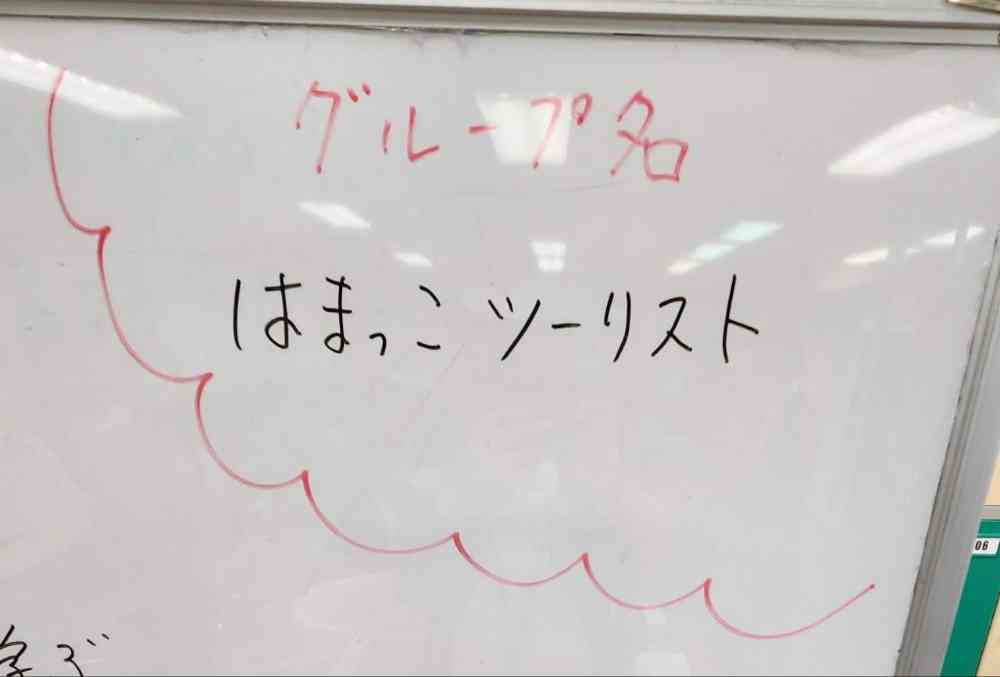 グループ名
はまっこツーリスト
学ぶ
06